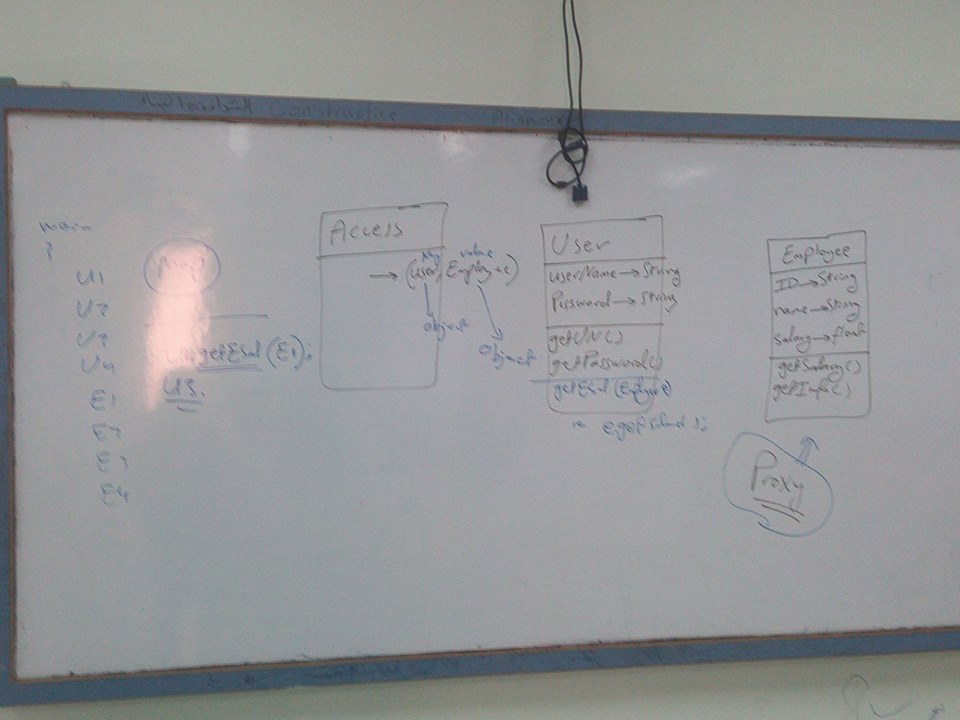 Constructive Alignme
main
{
U1
U2
U4
E1
E2
E4
Map
getEsal (E1);
U3.
Access
key value
→ (User, Employee)
object
Object
User
userName → String
Password → String
getUN()
getPassword()
getEsal (Employee)
Employee
ID → String
name → String
salary → float
getSalary()
getInfo()
Proxy